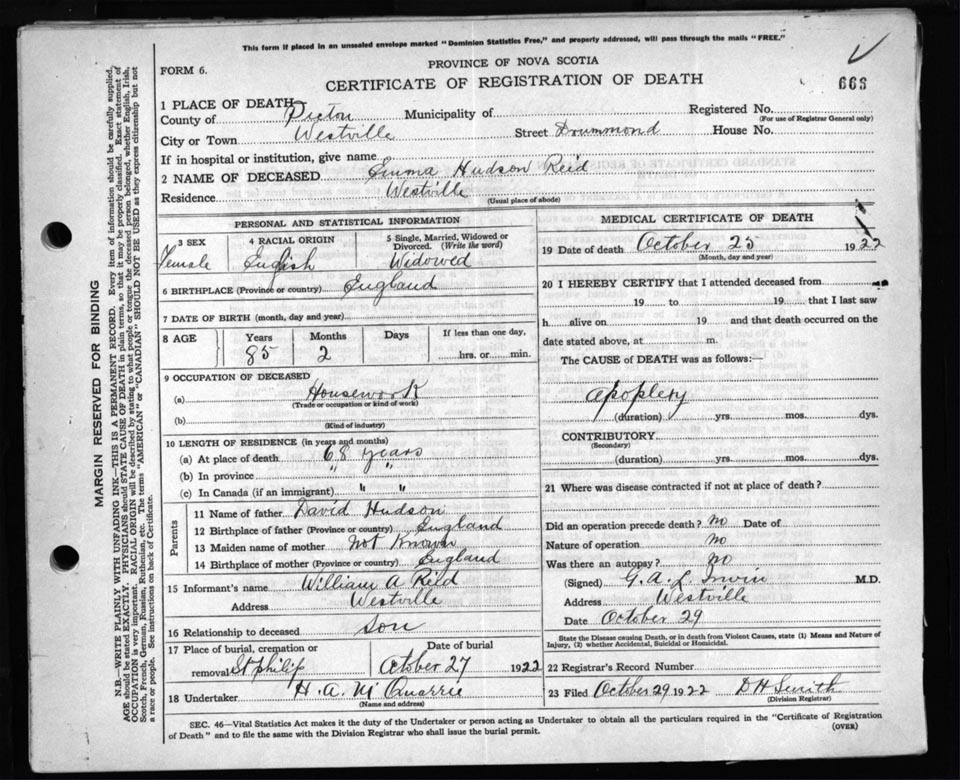 This form if placed in an unsealed envelope marked "Dominion Statistics Free," and properly addressed, will pass through the mails "FREE."
PROVINCE OF NOVA SCOTIA
FORM 6.
CERTIFICATE OF REGISTRATION OF DEATH
663
1 PLACE OF DEATH
County of Pictou Municipality of Registered No.
(For use of Registrar General only)
City or Town Westville Street Drummond House No.
If in hospital or institution, give name
2 NAME OF DECEASED Emma Hudson Reid
Residence Westville
(Usual place of abode)
PERSONAL AND STATISTICAL INFORMATION
3 SEX 4 RACIAL ORIGIN 5 Single, Married, Widowed or Divorced. (Write the word)
Female English Widowed
6 BIRTHPLACE (Province or country) England
7 DATE OF BIRTH (month, day and year)
8 AGE Years Months Days If less than one day,
85 2 hrs. or min.
9 OCCUPATION OF DECEASED
(a) Housework
(Trade or occupation or kind of work)
(b)
(Kind of industry)
10 LENGTH OF RESIDENCE (in years and months)
(a) At place of death 68 years
(b) In province " "
(c) In Canada (if an immigrant) " "
Parents
11 Name of father David Hudson
12 Birthplace of father (Province or country) England
13 Maiden name of mother Not Known
14 Birthplace of mother (Province or country) England
15 Informant's name William A Reid
Address Westville
16 Relationship to deceased Son
17 Place of burial, cremation or removal St Philip
Date of burial
October 27 1922
18 Undertaker H. A. Mc Quarrie
(Name and address)
MEDICAL CERTIFICATE OF DEATH
19 Date of death October 25 1922
(Month, day and year)
20 I HEREBY CERTIFY that I attended deceased from
19 to 19 that I last saw
h alive on 19 and that death occurred on the
date stated above, at m.
The CAUSE of DEATH was as follows:—
apoplexy
(duration) yrs. mos. dys.
CONTRIBUTORY
(Secondary)
(duration) yrs. mos. dys.
21 Where was disease contracted if not at place of death?
Did an operation precede death? No Date of
Nature of operation No
Was there an autopsy? No
(Signed) G. A. L. Irwin M.D.
Address Westville
Date October 29
State the Disease causing Death, or in death from Violent Causes, state (1) Means and Nature of
Injury, (2) whether Accidental, Suicidal or Homicidal.
22 Registrar's Record Number
23 Filed October 29 1922 D H Smith
(Division Registrar)
SEC. 46—Vital Statistics Act makes it the duty of the Undertaker or person acting as Undertaker to obtain all the particulars required in the "Certificate of Registration
of Death" and to file the same with the Division Registrar who shall issue the burial permit.
(OVER)
MARGIN RESERVED FOR BINDING
N.B.—WRITE PLAINLY WITH UNFADING INK—THIS IS A PERMANENT RECORD. Every item of information should be carefully supplied,
AGE should be stated EXACTLY. PHYSICIANS should STATE CAUSE OF DEATH in plain terms, so that it may be properly classified. Exact statement of
OCCUPATION is very important. RACIAL ORIGIN will be described by stating to what people or tongue the deceased person belonged, whether English, Irish,
Scotch, French, German, Russian, Ruthenian, etc. The terms "AMERICAN" or "CANADIAN" SHOULD NOT BE USED as they express citizenship but not
a race or people. See instructions on back of Certificate.